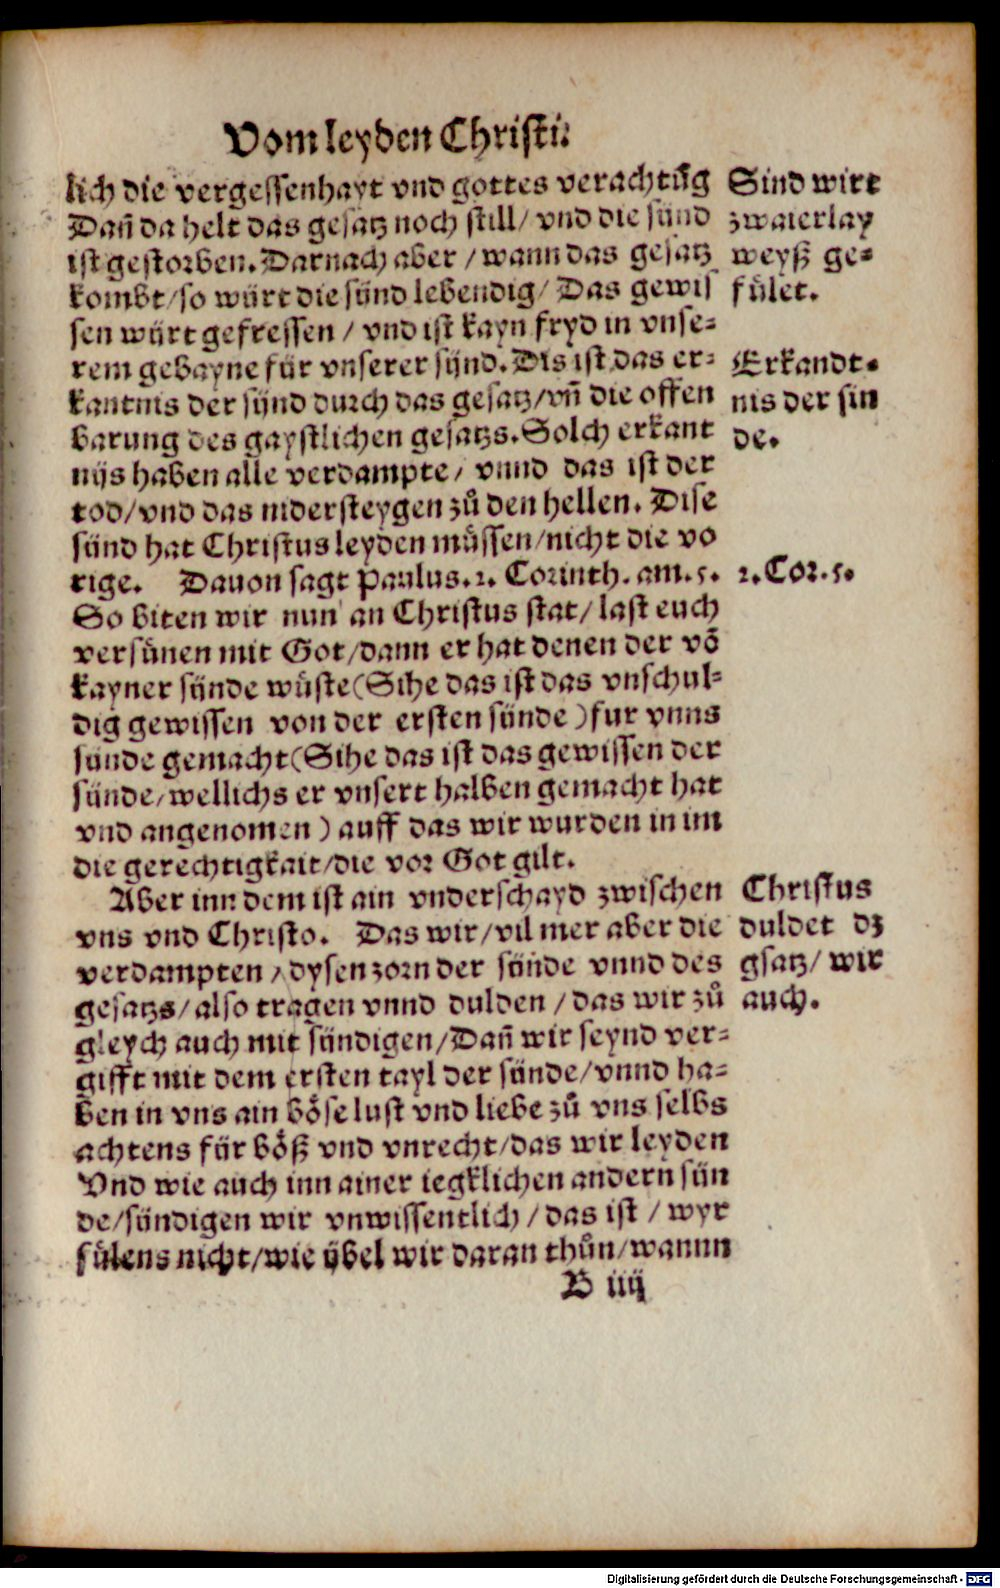 Vom leyden Christi.
lich die vergessenhayt vnd gottes verachtũg
Dañ da helt das gesatz noch still/ vnd die sünd
ist gestorben. Darnach aber / wann das gesatz
kombt/so würt die sünd lebendig/ Das gewis
sen würt gefressen / vnd ist kayn fryd in vnse-
rem gebayne für vnserer sünd. Dis ist das er-
kantnis der sünd durch das gesatz/vñ die offen
barung des gaystlichen gesatzs. Solch erkant
nijs haben alle verdampte/ vnnd das ist der
tod/vnd das nidersteygen zů den hellen. Dise
sünd hat Christus leyden müssen/nicht die vo
rige. Dauon sagt Paulus. 2. Corinth. am. 5.
So biten wir nun an Christus stat/ last euch
versünen mit Got/dann er hat denen der võ
kayner sünde wüste(Sihe das ist das vnschul-
dig gewissen von der ersten sünde ) fur vnns
sünde gemacht(Sihe das ist das gewissen der
sünde/wellichs er vnsert halben gemacht hat
vnd angenomen ) auff das wir wurden in im
die gerechtigkait/die vor Got gilt.
Aber inn dem ist ain vnderschayd zwischen
vns vnd Christo. Das wir/vil mer aber die
verdampten / dysen zorn der sünde vnnd des
gesatzs/ also tragen vnnd dulden / das wir zů
gleych auch mit sündigen/Dañ wir seynd ver-
gifft mit dem ersten tayl der sünde/vnnd ha-
ben in vns ain böse lust vnd liebe zů vns selbs
achtens für böß vnd vnrecht/das wir leyden
Vnd wie auch inn ainer iegklichen andern sün
de/sündigen wir vnwissentlich / das ist / wyr
fülens nicht/wie ÿbel wir daran thůn/wannn
B iiij
Sind wirt
zwaierlay
weyß ge-
fület.
Erkandt.
nis der sin
de.
2. Cor. 5.
Christus
duldet dz
gsatz/ wir
auch.
Digitalisierung gefördert durch die Deutsche Forschungsgemeinschaft - DFG